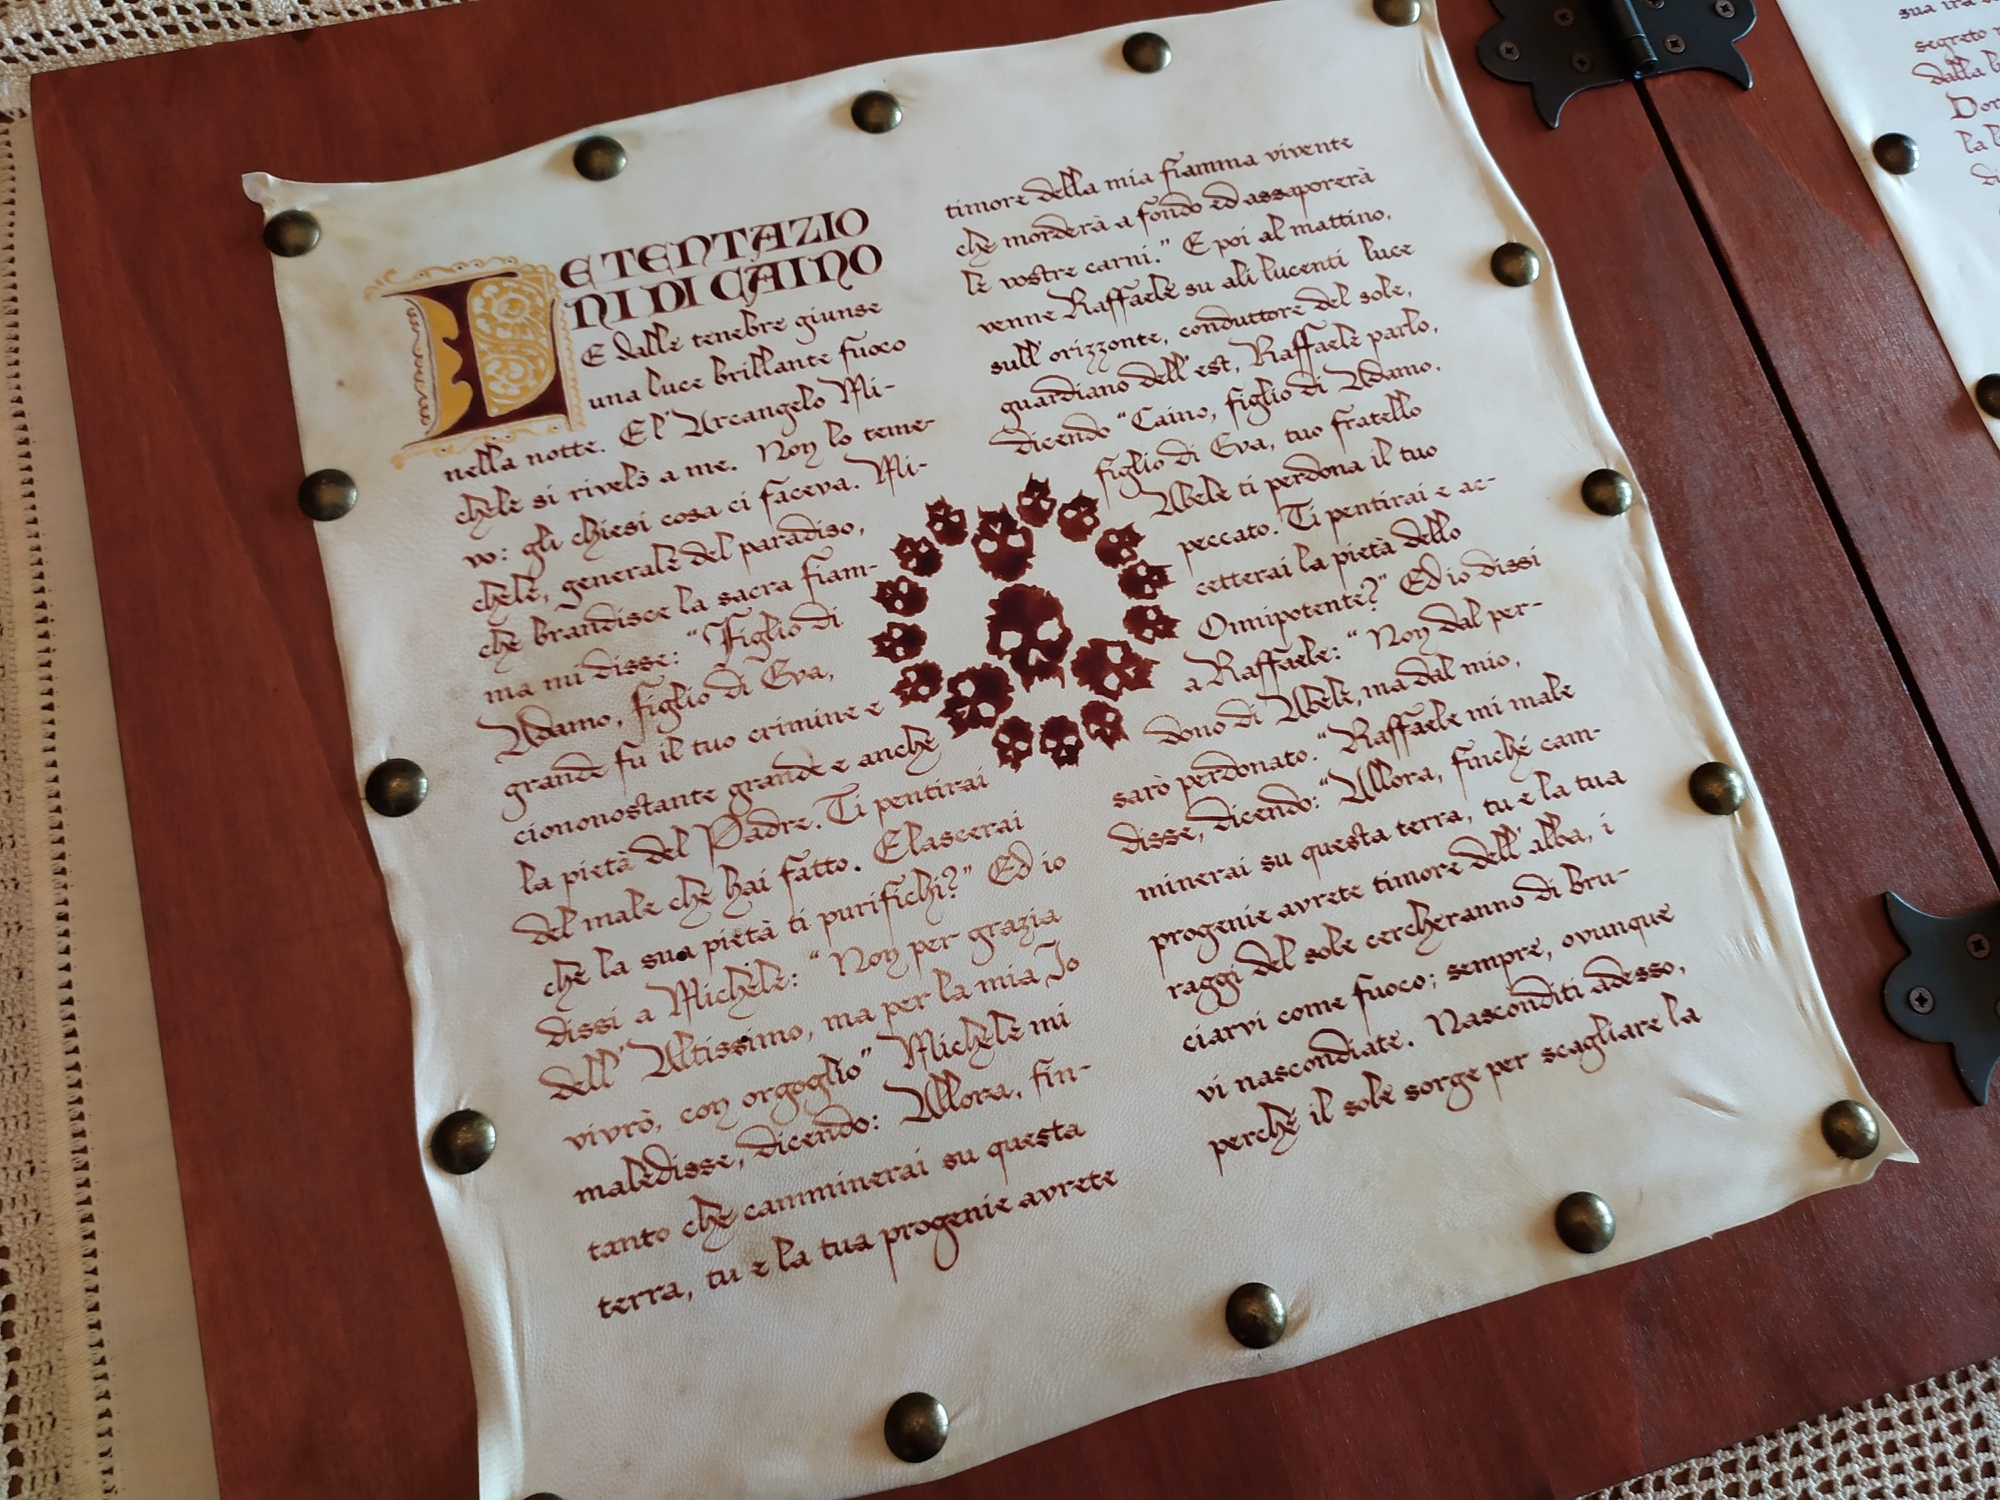 LE TENTAZIO
NI DI CAINO
E dalle tenebre giunse
una luce brillante fuoco
nella notte. E l'Arcangelo Mi-
chele si rivelò a me. Non lo teme-
vo: gli chiesi cosa ci faceva. Mi-
chele, generale del paradiso,
che brandisce la sacra fiam-
ma mi disse: "Figlio di
Adamo, figlio di Eva,
grande fu il tuo crimine e
ciononostante grande e anche
la pietà del Padre. Ti pentirai
del male che hai fatto. E lascerai
che la sua pietà ti purifichi?" Ed io
dissi a Michele: "Non per grazia
dell'Altissimo, ma per la mia Io
vivrò, con orgoglio" Michele mi
maledisse, dicendo: Allora, fin-
tanto che camminerai su questa
terra, tu e la tua progenie avrete
timore della mia fiamma vivente
che morderà a fondo ed assaporerà
le vostre carni." E poi al mattino,
venne Raffaele su ali lucenti luce
sull'orizzonte, conduttore del sole,
guardiano dell'est, Raffaele parlo,
dicendo "Caino, figlio di Adamo,
figlio di Eva, tuo fratello
Abele ti perdona il tuo
peccato. Ti pentirai e ac-
cetterai la pietà dello
Onnipotente?" Ed io dissi
a Raffaele: "Non dal per-
dono di Abele, ma dal mio,
sarò perdonato." Raffaele mi male
disse, dicendo: "Allora, finché cam-
minerai su questa terra, tu e la tua
progenie avrete timore dell'alba, i
raggi del sole cercheranno di bru-
ciarvi come fuoco; sempre, ovunque
vi nascondiate. Nasconditi adesso,
perché il sole sorge per scagliare la
sua ira
segreto
dalla
la